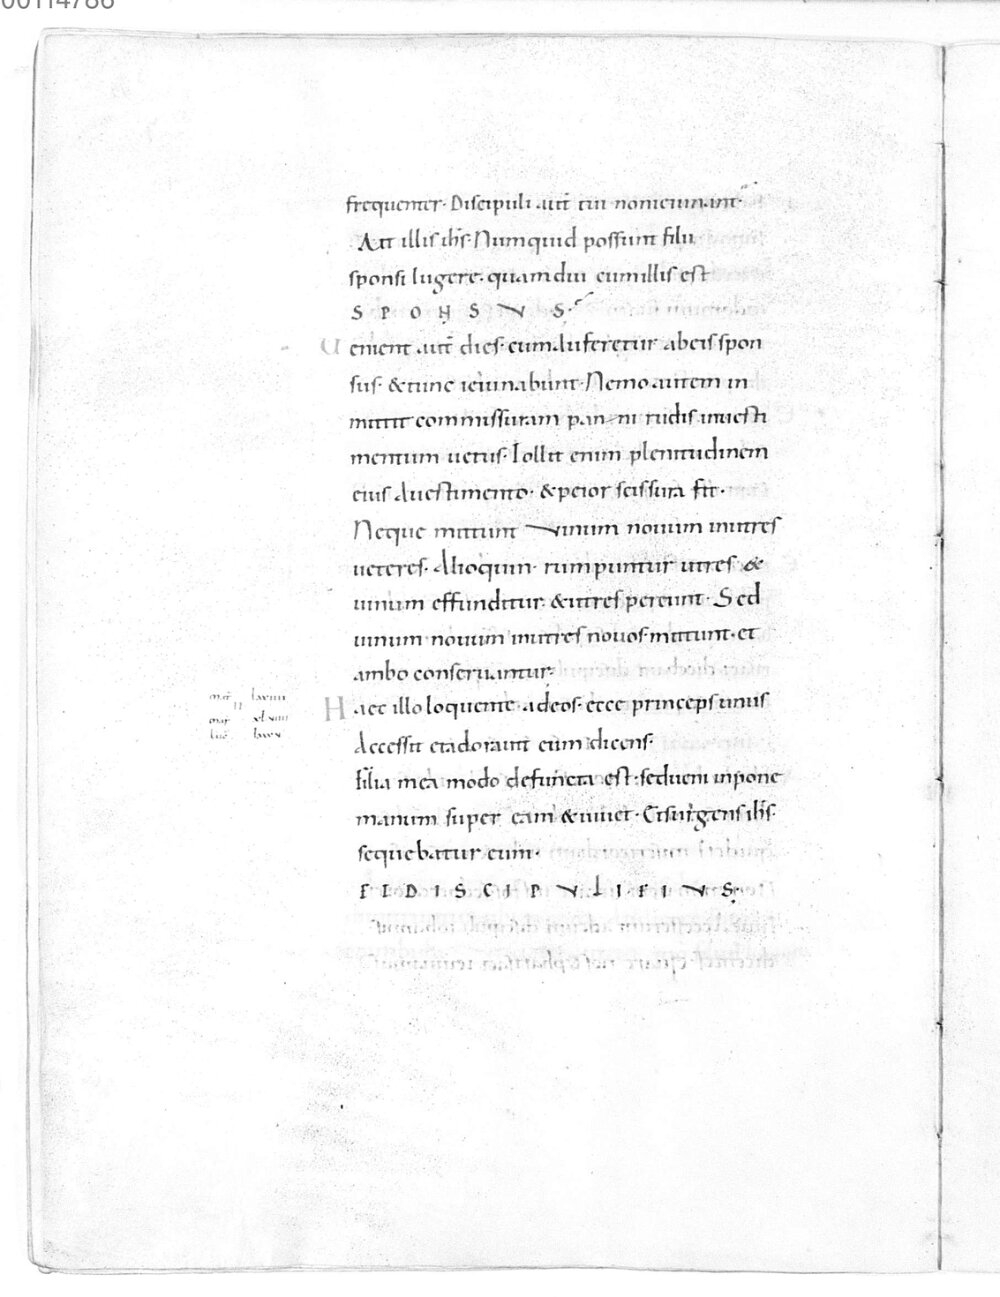 frequenter. Discipuli aut̄ tui nonieiunant.
Ait illis ih̄s. Numquid possunt filii
sponsi lugere. quamdiu cumillis est
SPONSVS.
Uenient aut̄ dies. cum auferetur abeis spon
sus. &tunc ieiunabunt. Nemo autem in
mittit commissuram panni rudis inuesti
mentum uetus. Tollit enim plenitudinem
eius auestimento. &peior scissura fit.
Neque mittunt uinum nouum inutres
ueteres. Alioquin rumpuntur utres &
uinum effunditur. &utres pereunt. Sed
uinum nouum inutres nouos mittunt. et
ambo conseruantur.
Haec illo loquente adeos. ecce princeps unus
Accessit etadorauit eum dicens.
filia mea modo defuncta est. sedueni inpone
manum super eam &uiuet. Etsurgens ih̄s.
sequebatur eum.
ETDISCIPVLIEIVS.